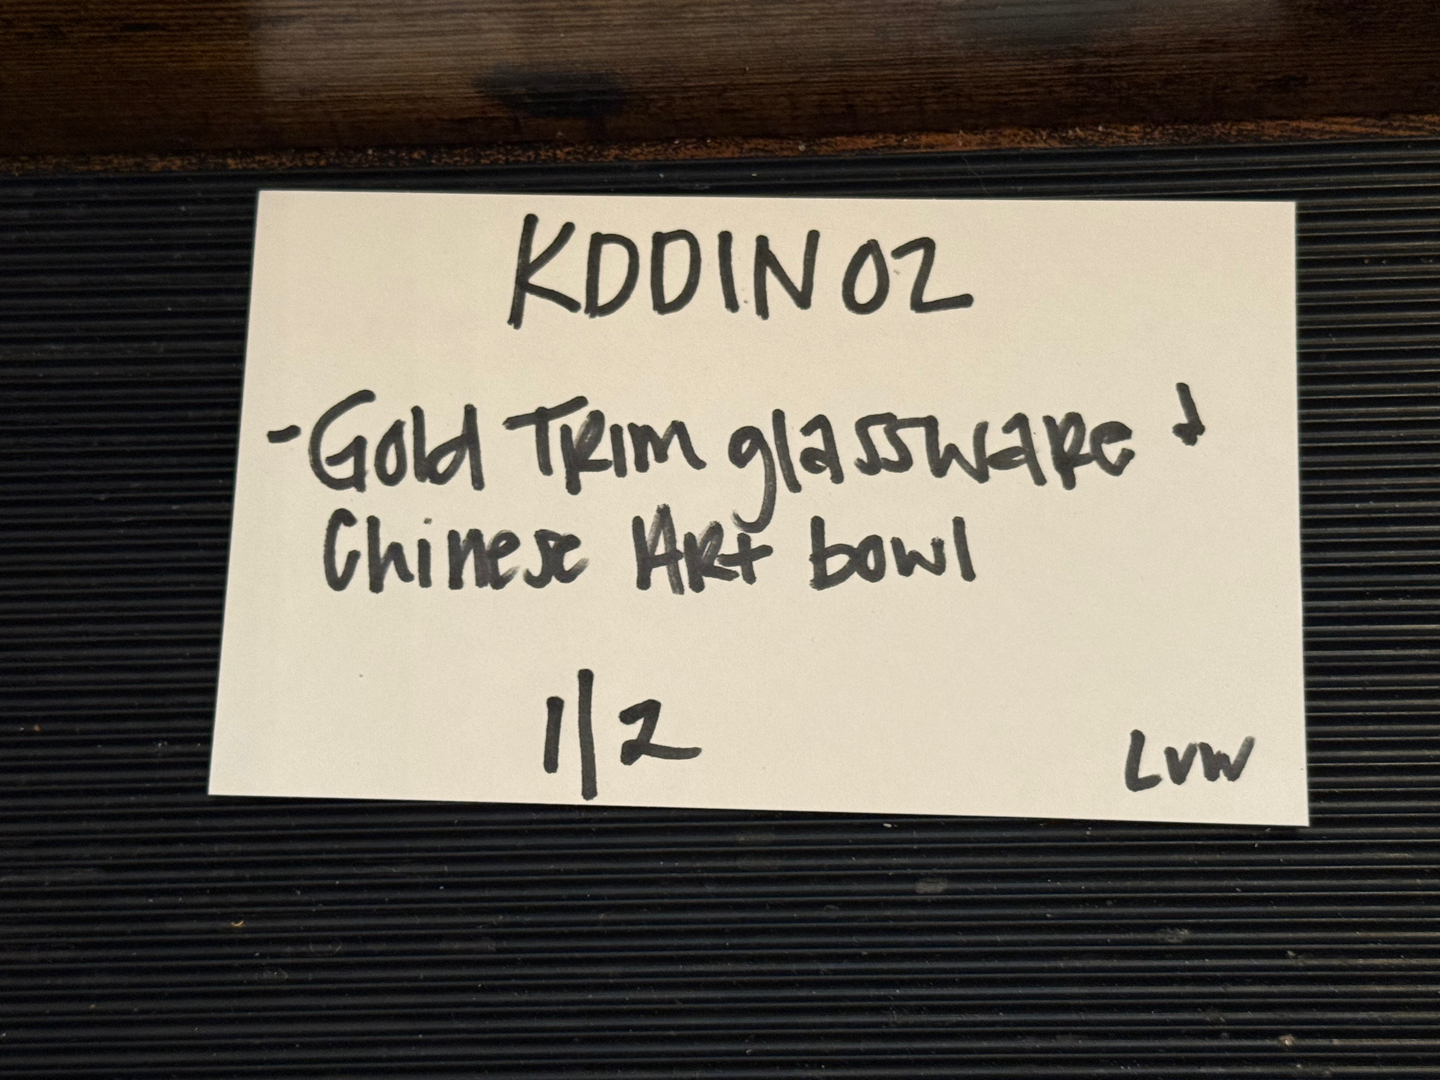 KDDIN02
- Gold TRIM glassware &
Chinese ARt bowl
1/2
LVW